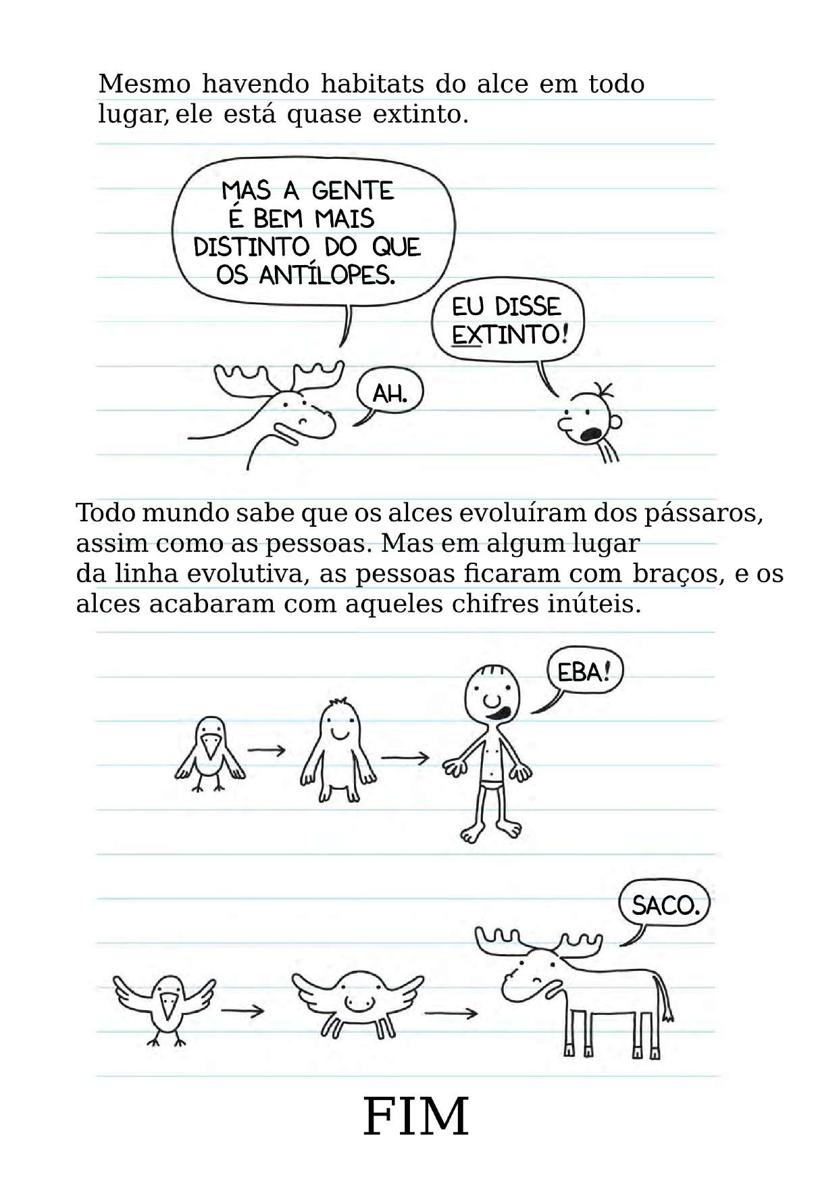 Mesmo havendo habitats do alce em todo
lugar, ele está quase extinto.
MAS A GENTE
É BEM MAIS
DISTINTO DO QUE
OS ANTÍLOPES.
EU DISSE
EXTINTO!
AH.
Todo mundo sabe que os alces evoluíram dos pássaros,
assim como as pessoas. Mas em algum lugar
da linha evolutiva, as pessoas ficaram com braços, e os
alces acabaram com aqueles chifres inúteis.
EBA!
SACO.
FIM